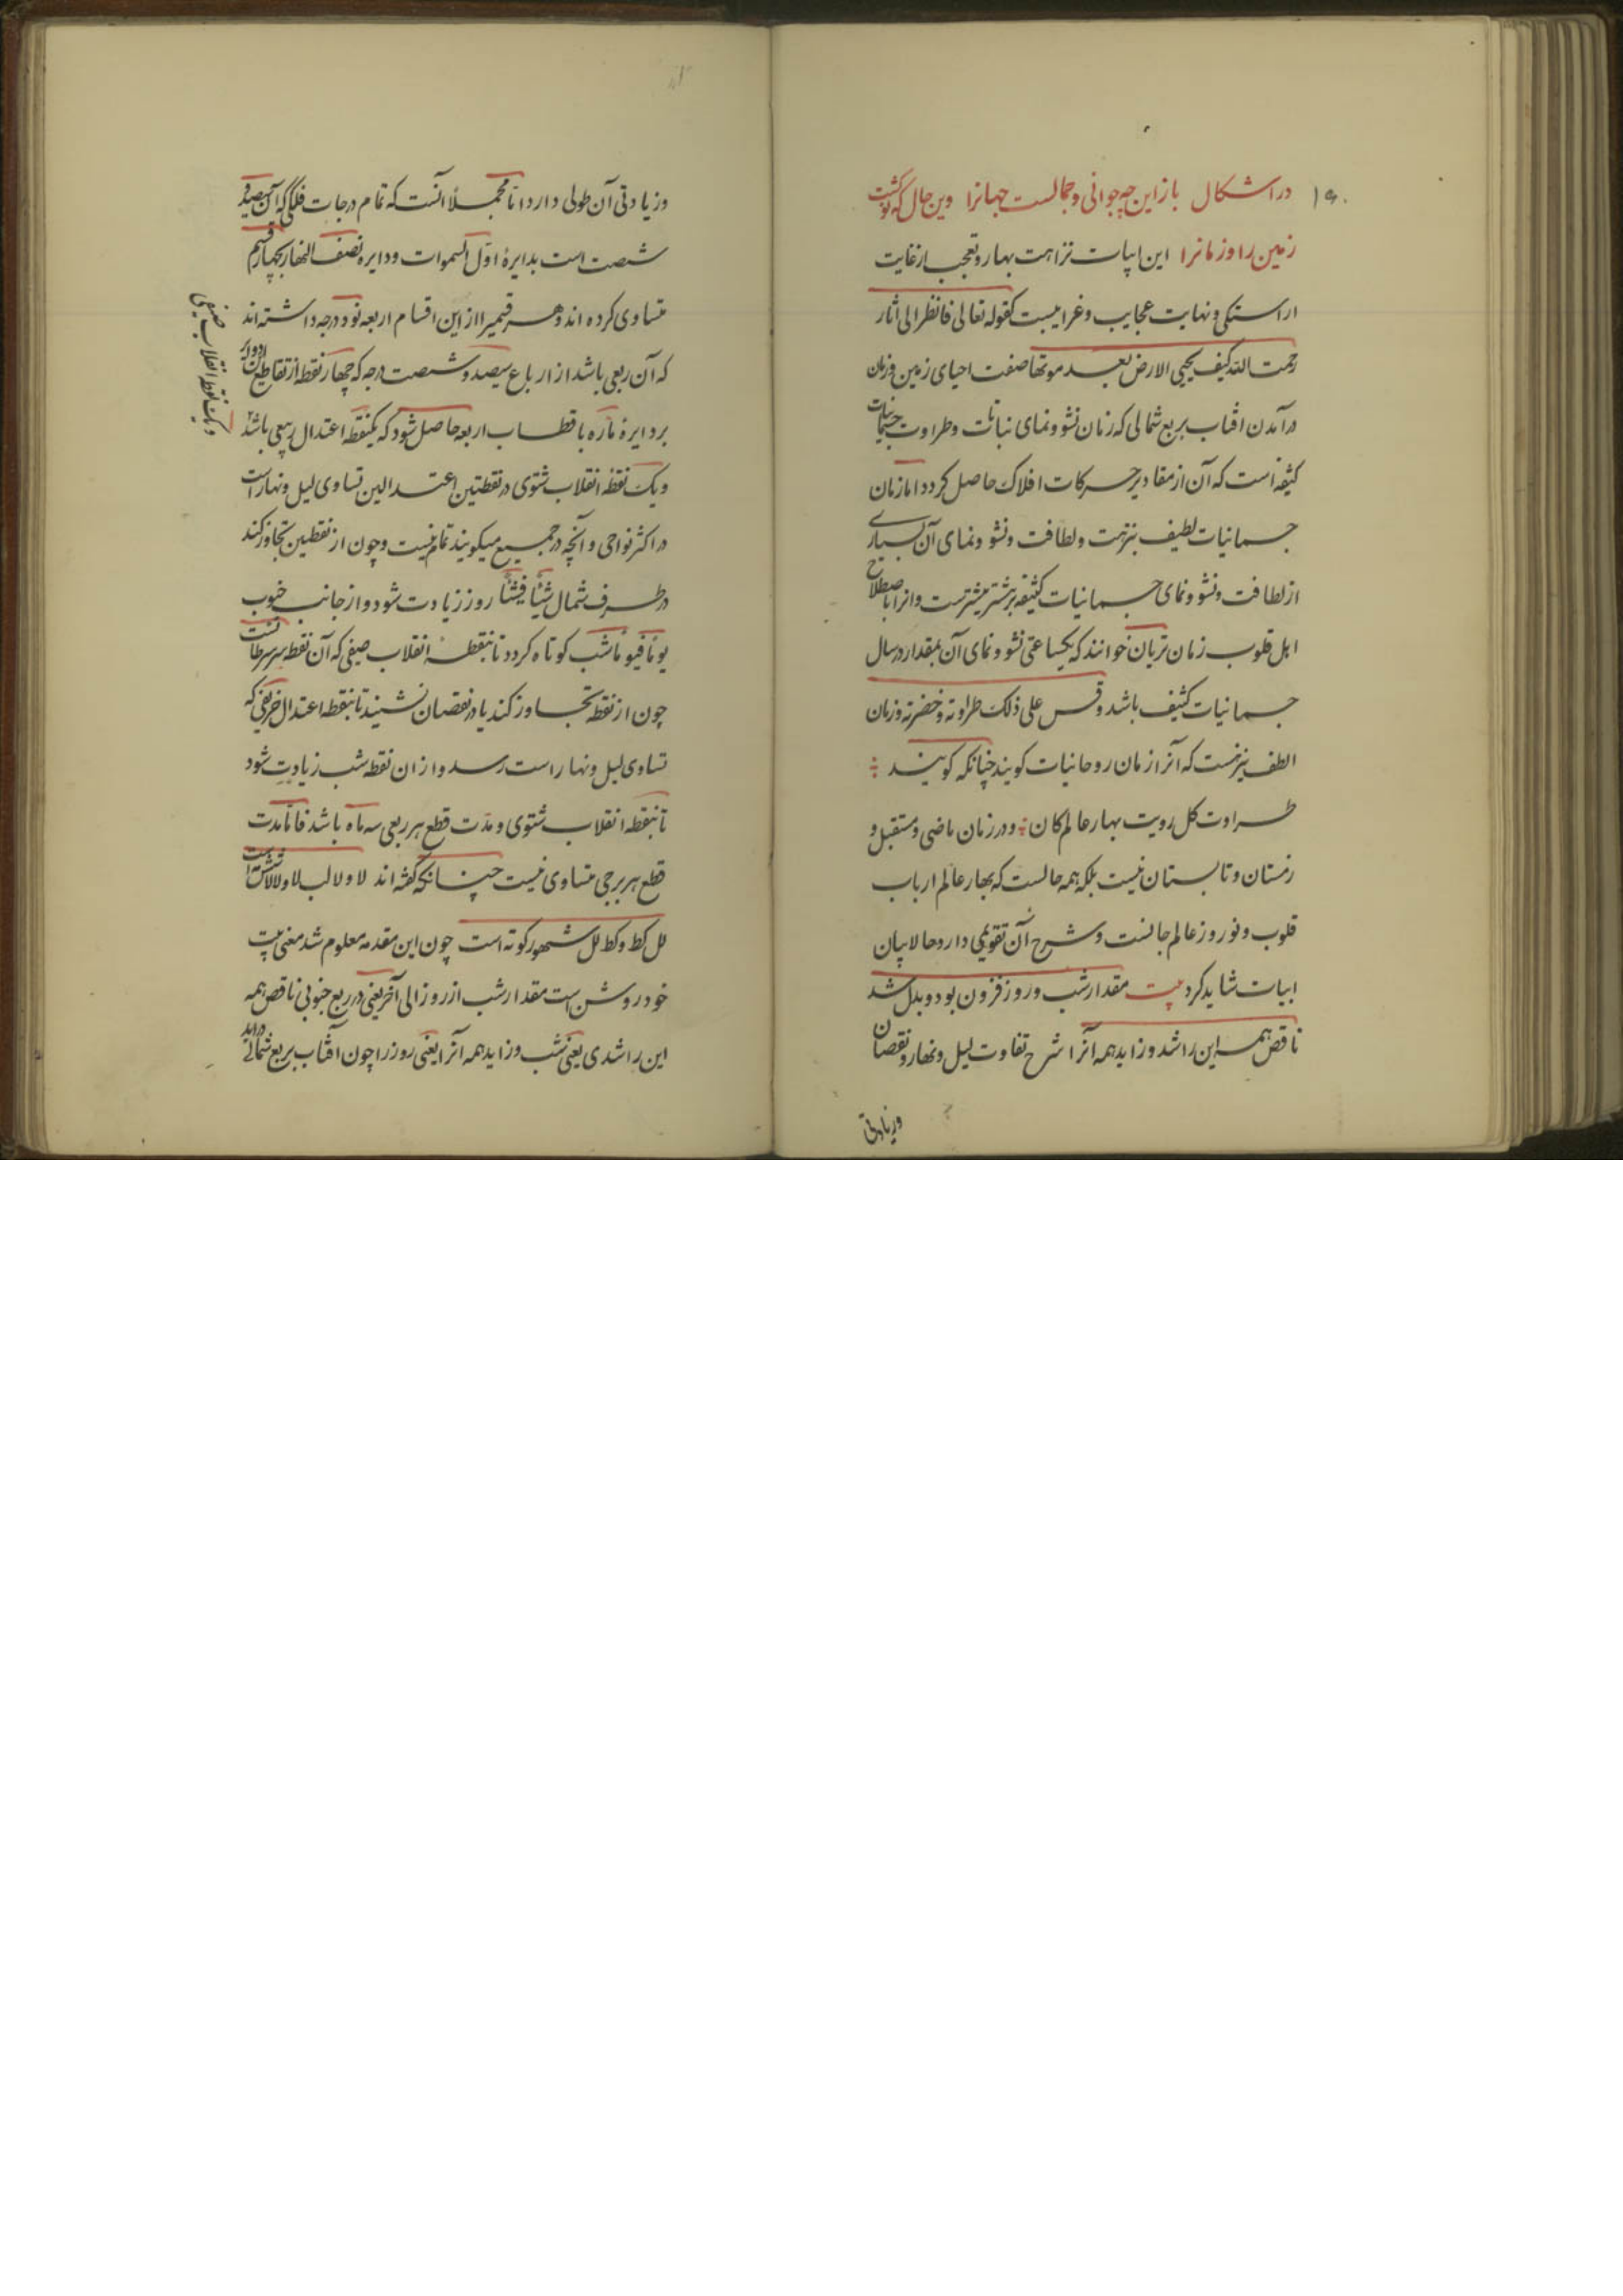 ۱۹۰
در اشکال باز این چه جوانی و جمالست جهانرا وین حال که نو گشت
زمین را و زمانرا این ابیات نزاهت بهار و تعجب از غایت
اراستکی و نهایت عجایب و غرایبست کقوله تعالی فانظر الی اثار
رحمت الله کیف یحیی الارض بعد موتها صفت احیای زمین و زمان
در آمدن افتاب بربع شمالی که زمان نشو و نمای نباتات و طراوت جسمانیات
کثیفه است که آن از مقادیر حرکات افلاک حاصل کردد اما زمان
جسمانیات لطیف بنزهت و لطافت و نشو و نمای آن بسیاری
از لطافت و نشو و نمای جسمانیات کثیفه برشتر بیشترست و انرا باصطلاح
اهل قلوب زمان خوانند که یکساعتی نشو و نمای آن بمقدار دو سال
جسمانیات کثیف باشد و قس علی ذلک طراوته و خضرته و زمان
الطف نیز هست که آنرا زمان روحانیات کویند چنانکه کویند
طراوت کل رویت بهار عالم کان و در زمان ماضی و مستقبل و
زمستان و تابستان نیست بلکه همه حالست که بهار عالم ارباب
قلوب و نوروز عالم جانست و شرح آن تقویمی دارد حالا بیان
ابیات شاید کرد بیت مقدار شب و روز فزون بود و بدل شد
ناقص همه این را شد و زاید همه آنرا شرح تفاوت لیل و نهار و نقصان
و زیادتی
و زیادتی آن طولی دارد اما مجملا آنست که تمام درجات فلکی که آن سیصد و
شصت است بدایرۀ اوّل السموات و دایره نصف النهار بچهار قسم
متساوی کرده اند و هر قسمیرا از این اقسام اربعه نود درجه داشته اند
که آن ربعی باشد از ارباع سیصد و شصت درجه که چهار نقطه از تقاطیع آن دوایر
بر دایرۀ ماره باقطاب اربعه حاصل شود که یکنقطه اعتدال ربیعی باشد
و یک نقطه انقلاب صیفی
و یک نقطه انقلاب شتوی در نقطتین اعتدالین تساوی لیل و نهار است
در اکثر نواحی و آنچه در جمیع میکویند تمام نیست و چون از نقطتین تجاوز کند
در طرف شمال شیئا فشیئا روز زیادت شود و از جانب جنوب
یوما فیوما شب کوتاه کردد تا بنقطه انقلاب صیفی که آن نقطه سر سرطانست
چون از نقطه تجاوز کند یا در نقصان نشیند تا بنقطه اعتدال خریفی که
تساوی لیل و نهار است رسد و از ان نقطه شب زیادت شود
تا بنقطه انقلاب شتوی و مدّت قطع هر ربعی سه ماه باشد فاما مدت
قطع هر برجی متساوی نیست چنانکه کفته اند لا و لا لب لا و لا لا شش مه است
لل کط و کط لل شهور کوته است چون این مقدمه معلوم شد معنی بیت
خود روشن است مقدار شب از روز الی آخر یعنی در ربع جنوبی ناقص همه
این را شدی یعنی شب و زاید همه آنرا یعنی روز را چون آفتاب بربع شمالی در آید